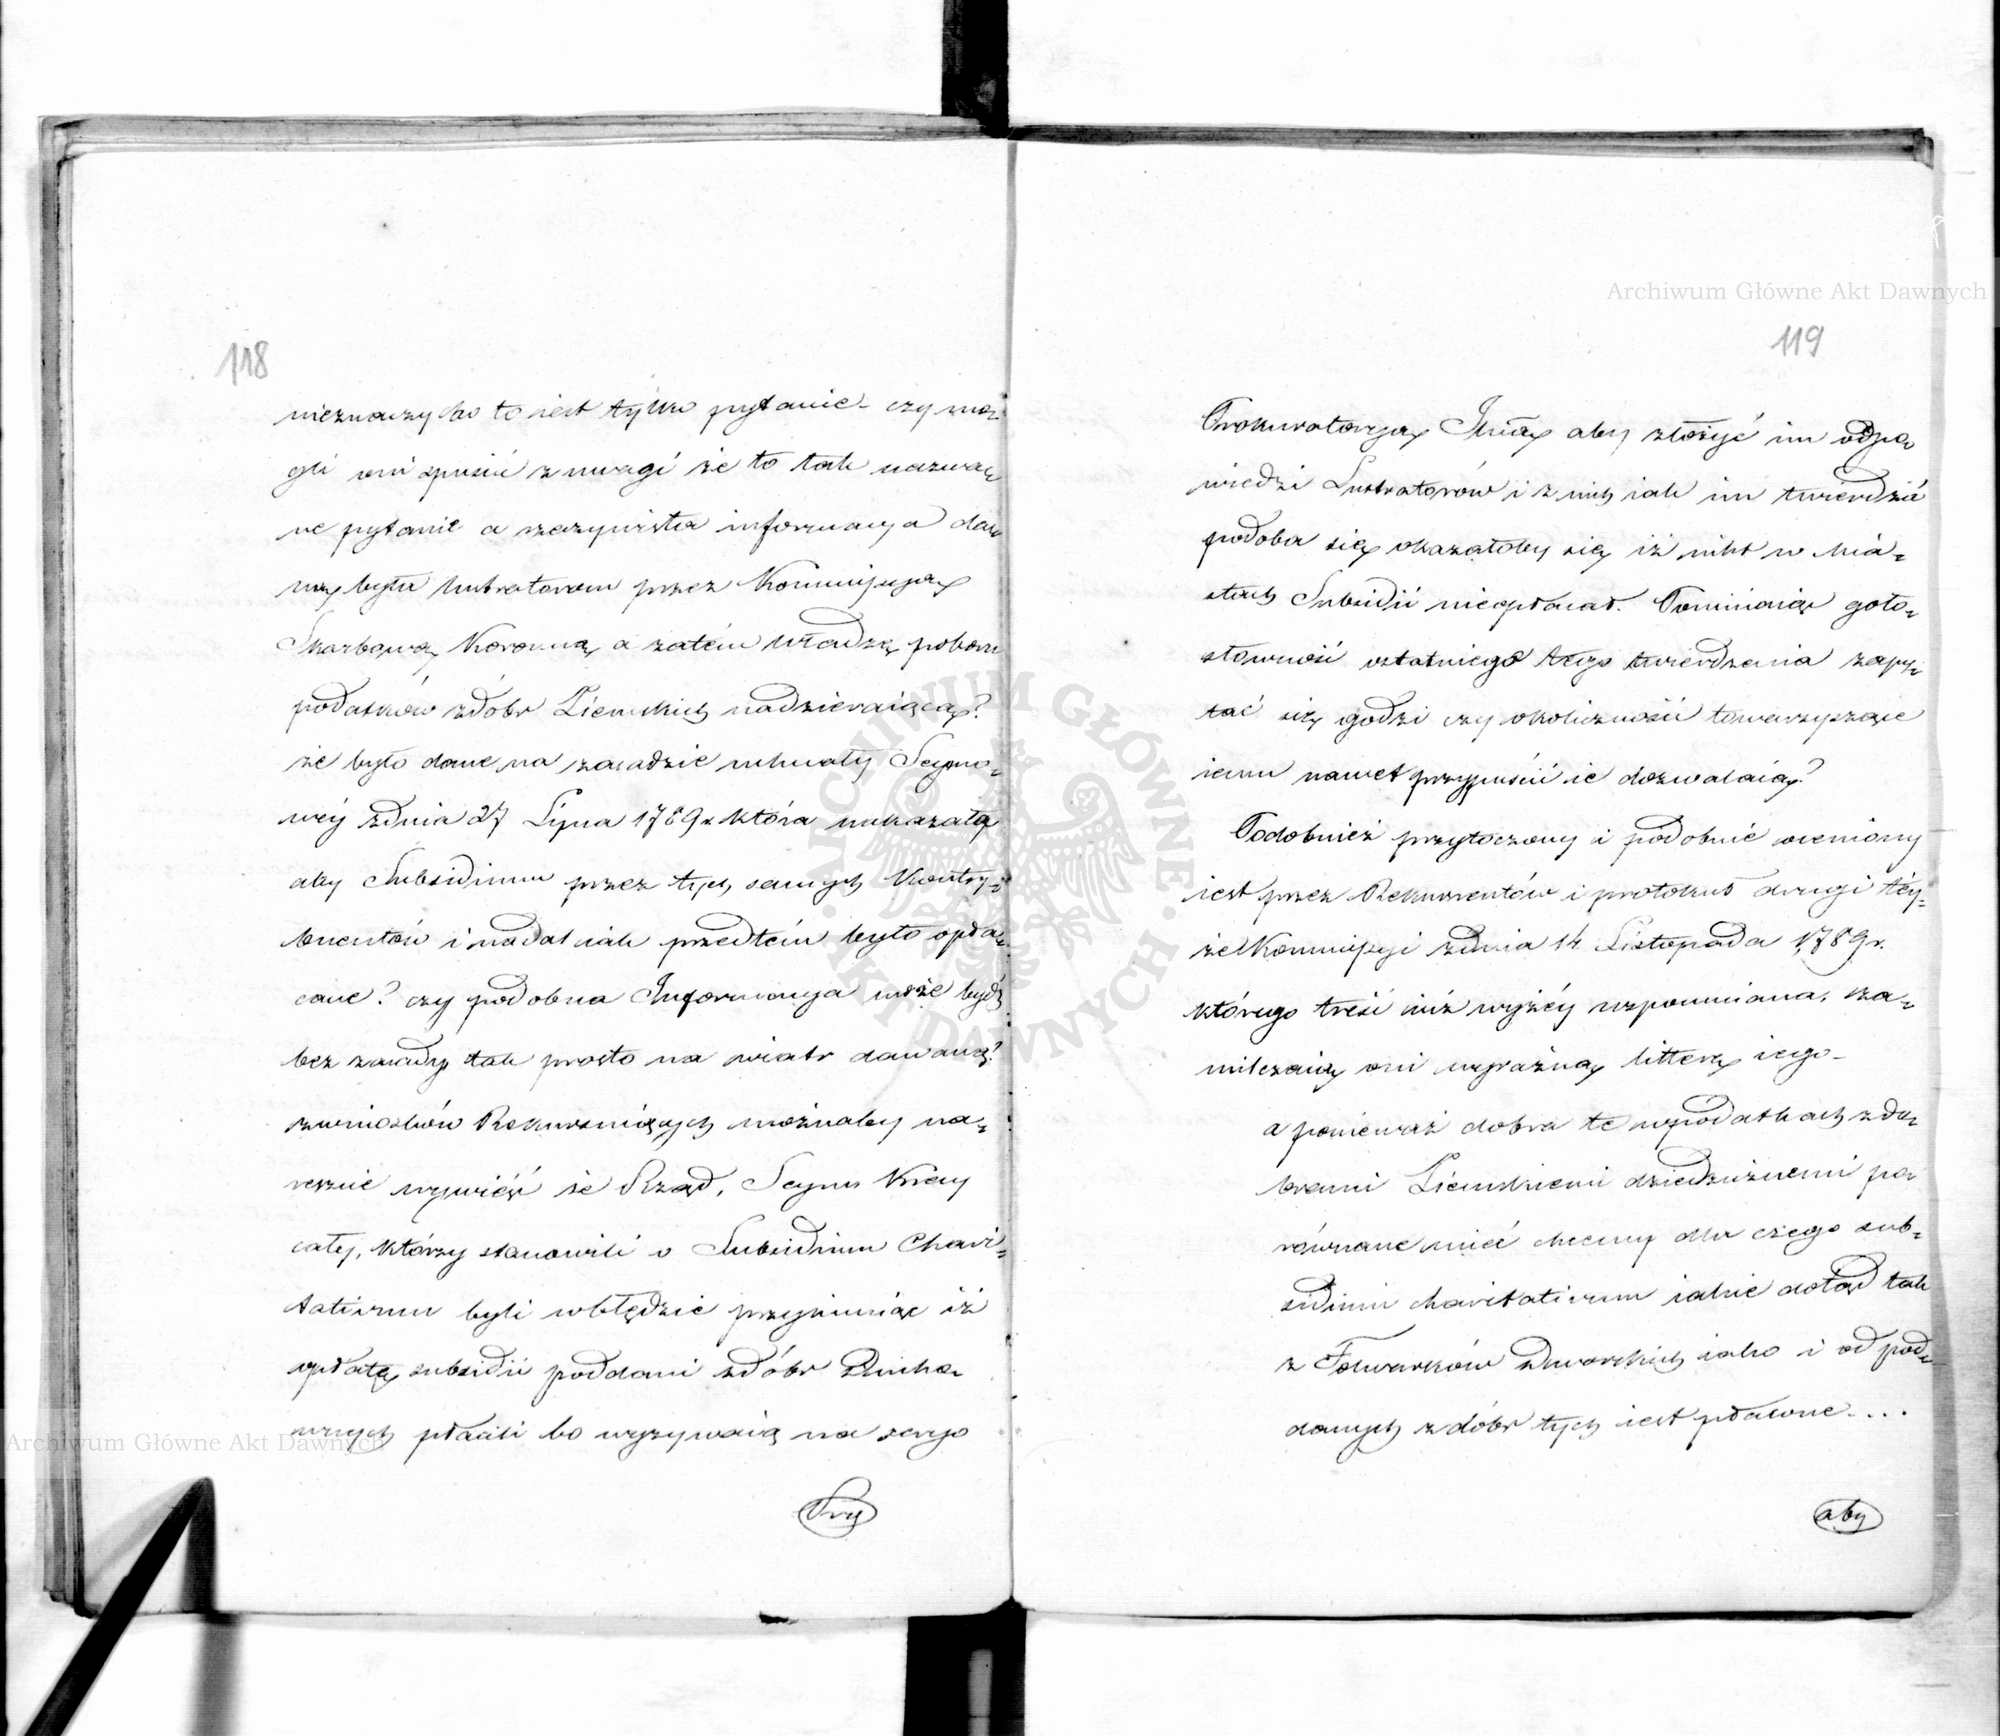 118
nieznaczy bo to iest tylko pytanie – czy mo-
gli oni spuścić z uwagi że to tak nazwa-
ne pytanie a rzeczywista informacya da-
ną była lustratorom przez Kommissyą
Skarbową Koronną a zatém władzę poboru
podatków z dóbr Ziemskich nadzieraiącą?
że było dane na zasadzie uchwały Seymo-
wéy z dnia 27 Lipca 1789 r. która nakazała
aby Subsidium przez tych samych Kontry-
buentów i nadal iak przedtém było opła-
cane? czy podobna Informacya może bydź
bez zasady tak prosto na wiatr dawaną?
z wniosków Rekurruiących możnaby na-
reszcie wywieść że Rząd, Seym Kray
cały, którzy stanowili o Subsidium Chari-
tativum byli w błędzie przyimuiąc iż
opłatę subsidii poddani z dóbr Ducho-
wnych płacili bo wyzywaią na sengo
Pro
119
Prokuratoryą aby złożyć im odpo-
wiedzi Lustratorów i z nich iak im twierdzić
podoba się okazałoby się iż nikt w mia-
stach Subsidii nieopłacał. Pominąwszy goło-
słowność ostatniego tego twierdzenia zapy-
tać się godzi czy okoliczności towarzyszące
iemu nawet przypuścić ie dozwalaią?
Podobnież przytoczony i podobnie oceniony
iest przez Rekurrentów i protokuł drugi téy-
że Kommissyi z dnia 14 Listopada 1789 r.
którego treść iuż wyżéy wspomniana, za-
milczaią oni wyraźną litterę iego –
a ponieważ dobra te w podatkach z do-
brami Ziemskiemi dziedzicznemi po-
równane mieć chcemy dla czego sub-
sidium charitativum iakie dotąd tak
z Folwarków Dworskich iako i od pod-
danych z dóbr tych iest płacone....
aby